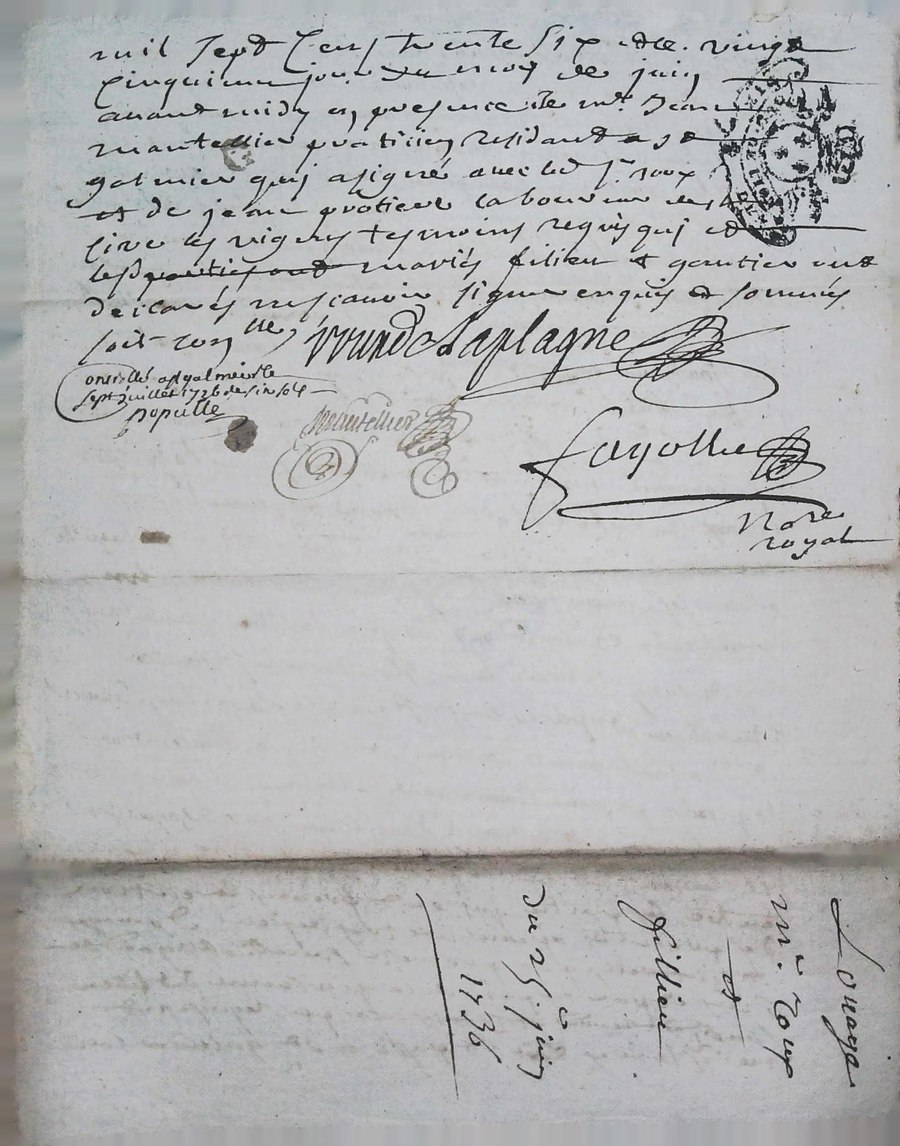 mil sept cens trente six et le vingt
cinquieme jour du mois de juin
avant midy en presence de mr. Jean
mantellier praticien residant a st
galmier quy a signé avec led sr. roux
et de jean protiere laboureur des
cive les vignes tesmoins requis qui et
les parties ont mariés filieu et gontier ont
declarés ne scavoir signer enquis et sommés
soit
Laplagne
controllé a st galmier le
sept juillet 1736 de six sols
populle
Mantellier
fayolle
Nore
royal
Louage
Mr. Roux
et
fillieu
du 25e. juin
1736